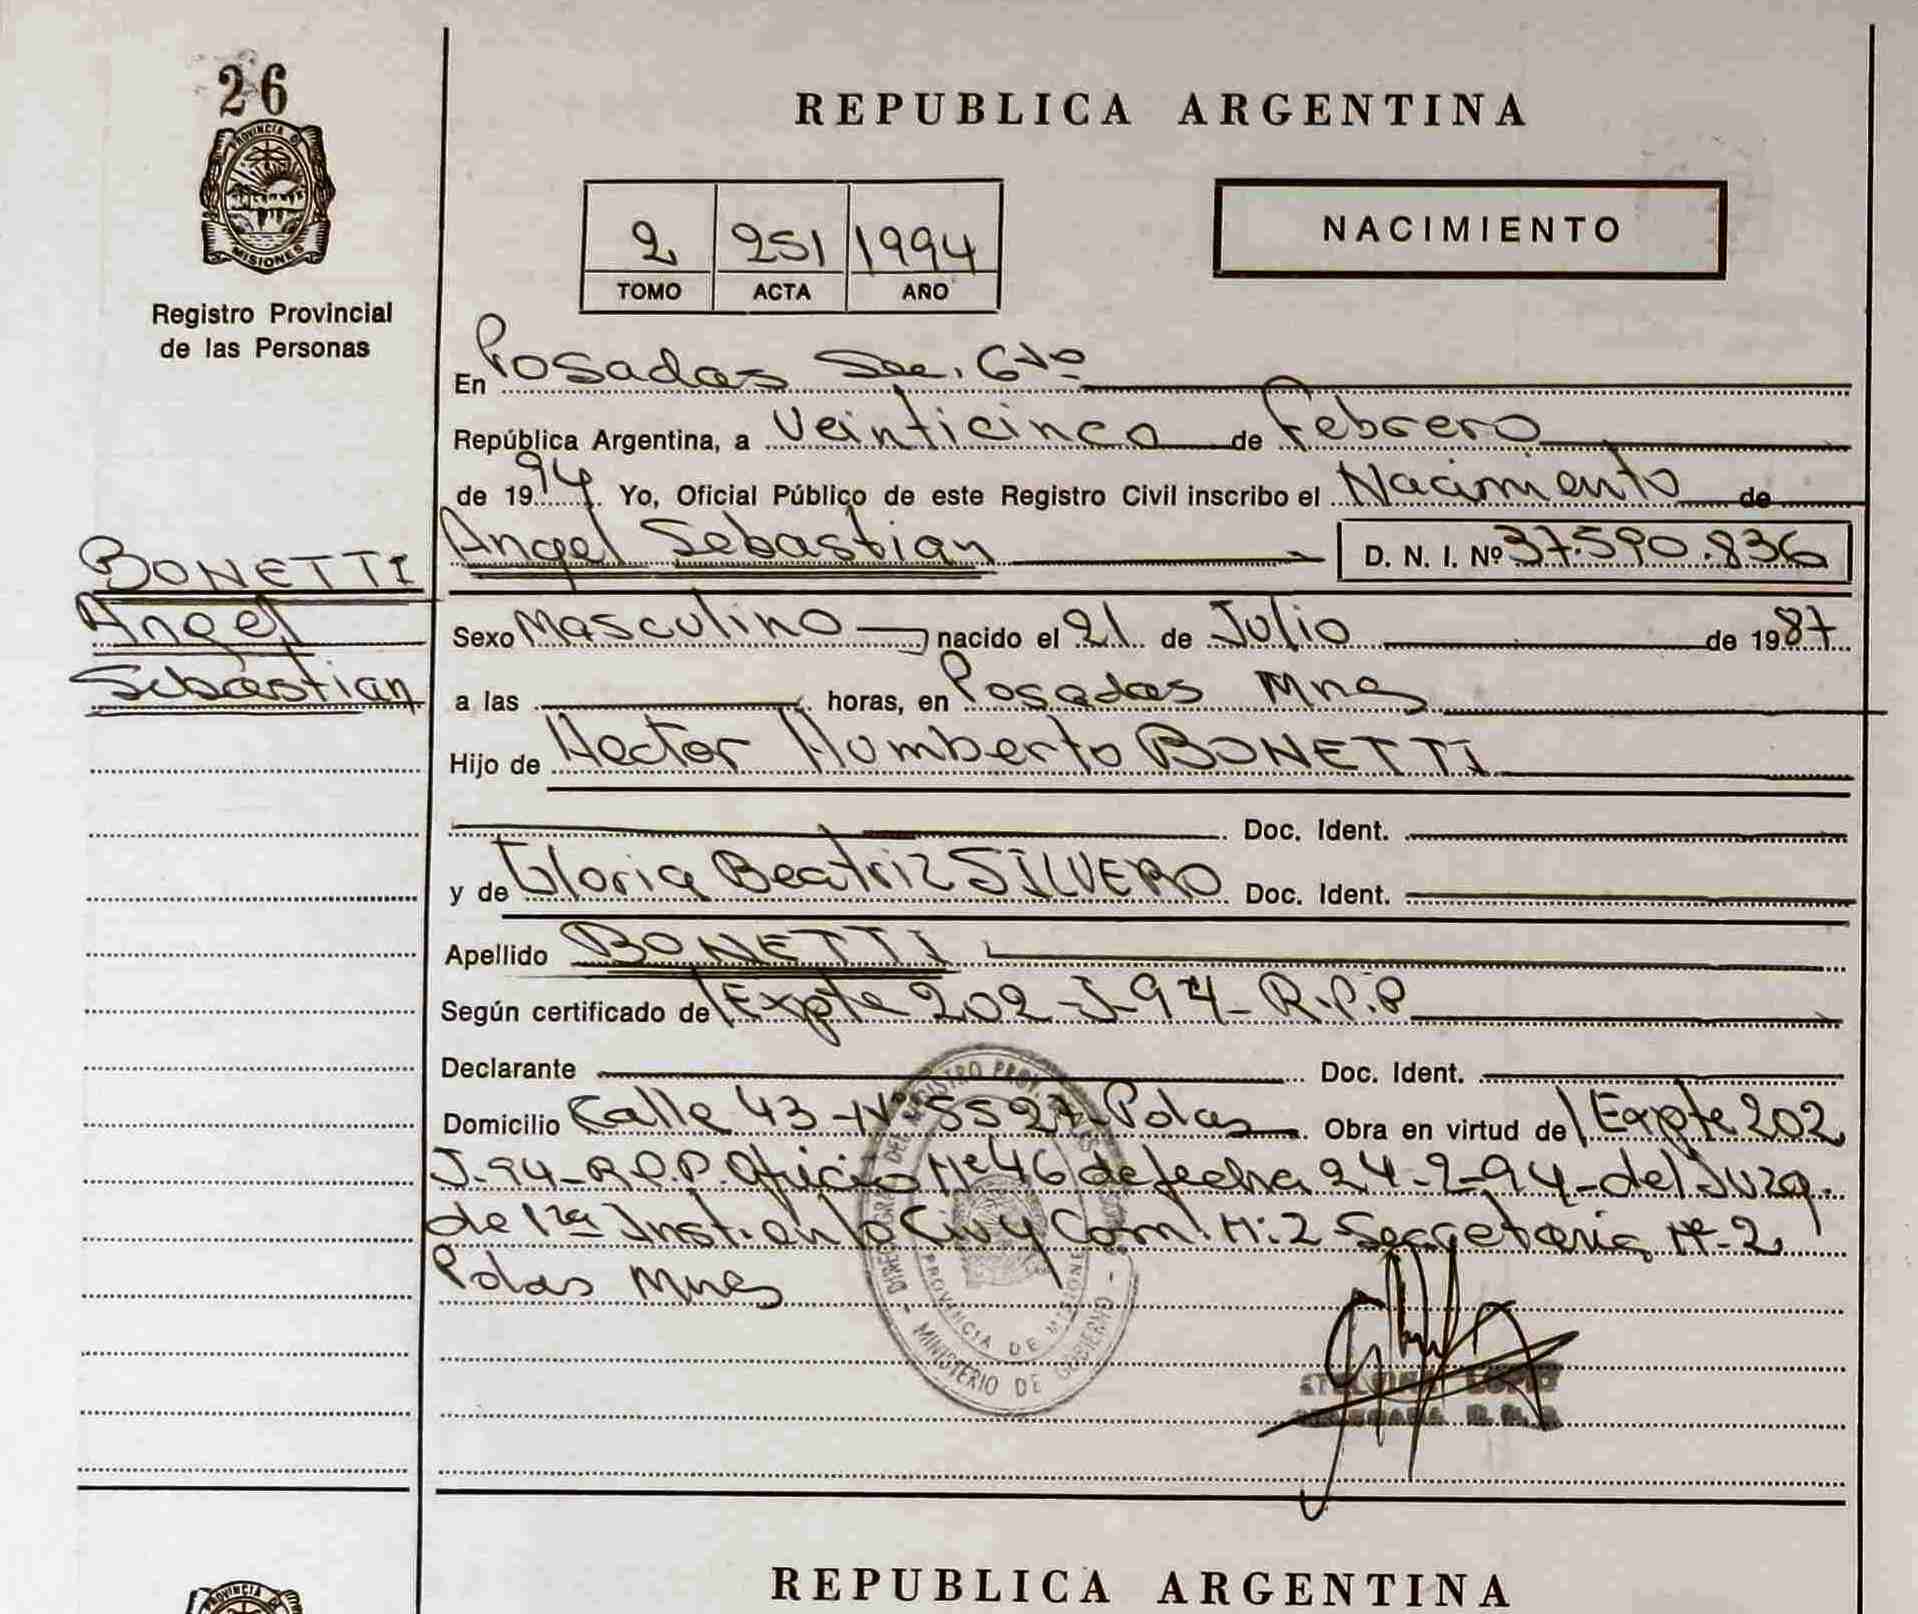 26
PROVINCIA DE
MISIONES
Registro Provincial
de las Personas
BONETTI
Angel
Sebastian
REPUBLICA ARGENTINA
2 251 1994
TOMO ACTA AÑO
NACIMIENTO
En Posadas Sec. 6ta
República Argentina, a Veinticinco de Febrero
de 1994. Yo, Oficial Público de este Registro Civil inscribo el Nacimiento de
Angel Sebastian D. N. I. Nº 37.590.836
Sexo Masculino nacido el 21 de Julio de 1987
a las horas, en Posadas Mnes
Hijo de Hector Humberto BONETTI
Doc. Ident.
y de Gloria Beatriz SILVERO Doc. Ident.
Apellido BONETTI
Según certificado de Expte 202-J-94-R.P.P
Declarante Doc. Ident.
Domicilio Calle 43-Nº 5527 Pdas Obra en virtud de Expte 202
J-94-R.P.P. Oficio Nº 46 de fecha 24-2-94-del Juzg.
de 1ra Inst. en lo Civ y Com. N: 2 Secretaria Nº 2
Pdas Mnes
PROVINCIA DE MISIONES
MINISTERIO DE GOBIERNO
LOPEZ
REPUBLICA ARGENTINA
PROVINCIA DE